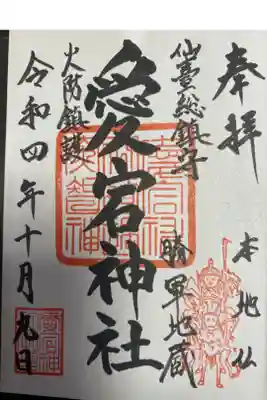 奉拝
本地仏
仙臺総鎮守
勝軍地蔵
愛宕神社
火防鎮護
令和四年十月九日